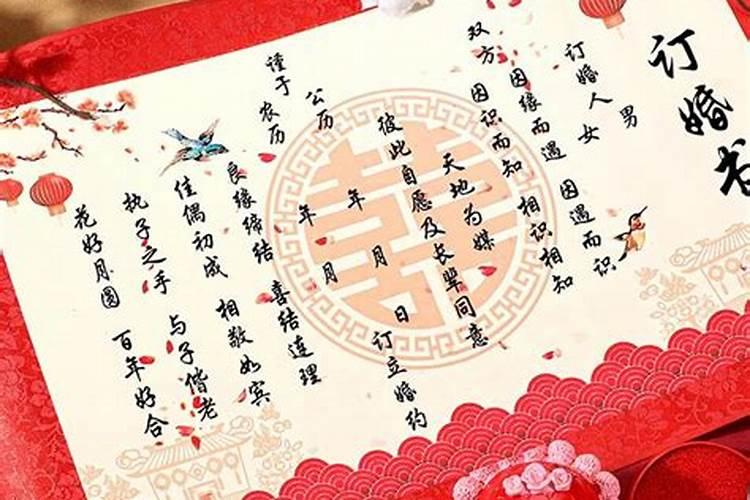 订婚书
男
订婚人 女
双方 因缘而遇 因遇而识
因识而知 相识相知
天地为媒
彼此自愿及长辈同意
谨于
公历 年 月 日 订立婚约
农历 年 月
良缘缔结 喜结连理
佳偶初成 相敬如宾
执子之手 与子偕老
花好月圆 百年好合
囍